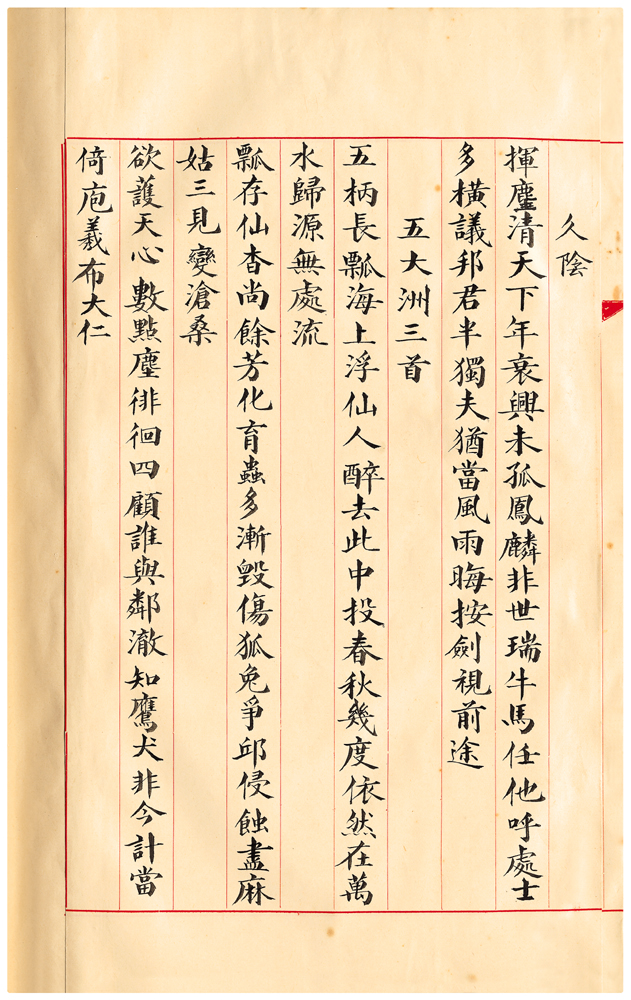 久陰
揮麈清天下年衰興未孤鳳麟非世瑞牛馬任他呼處士
多橫議邦君半獨夫猶當風雨晦按劍視前途
五大洲三首
五柄長瓢海上浮仙人醉去此中投春秋幾度依然在萬
水歸源無處流
瓢存仙杳尚餘芳化育蟲多漸毀傷狐兔爭邱侵蝕盡麻
姑三見變滄桑
欲護天心數點塵徘徊四顧誰與鄰澈知鷹犬非今計當
倚庖羲布大仁